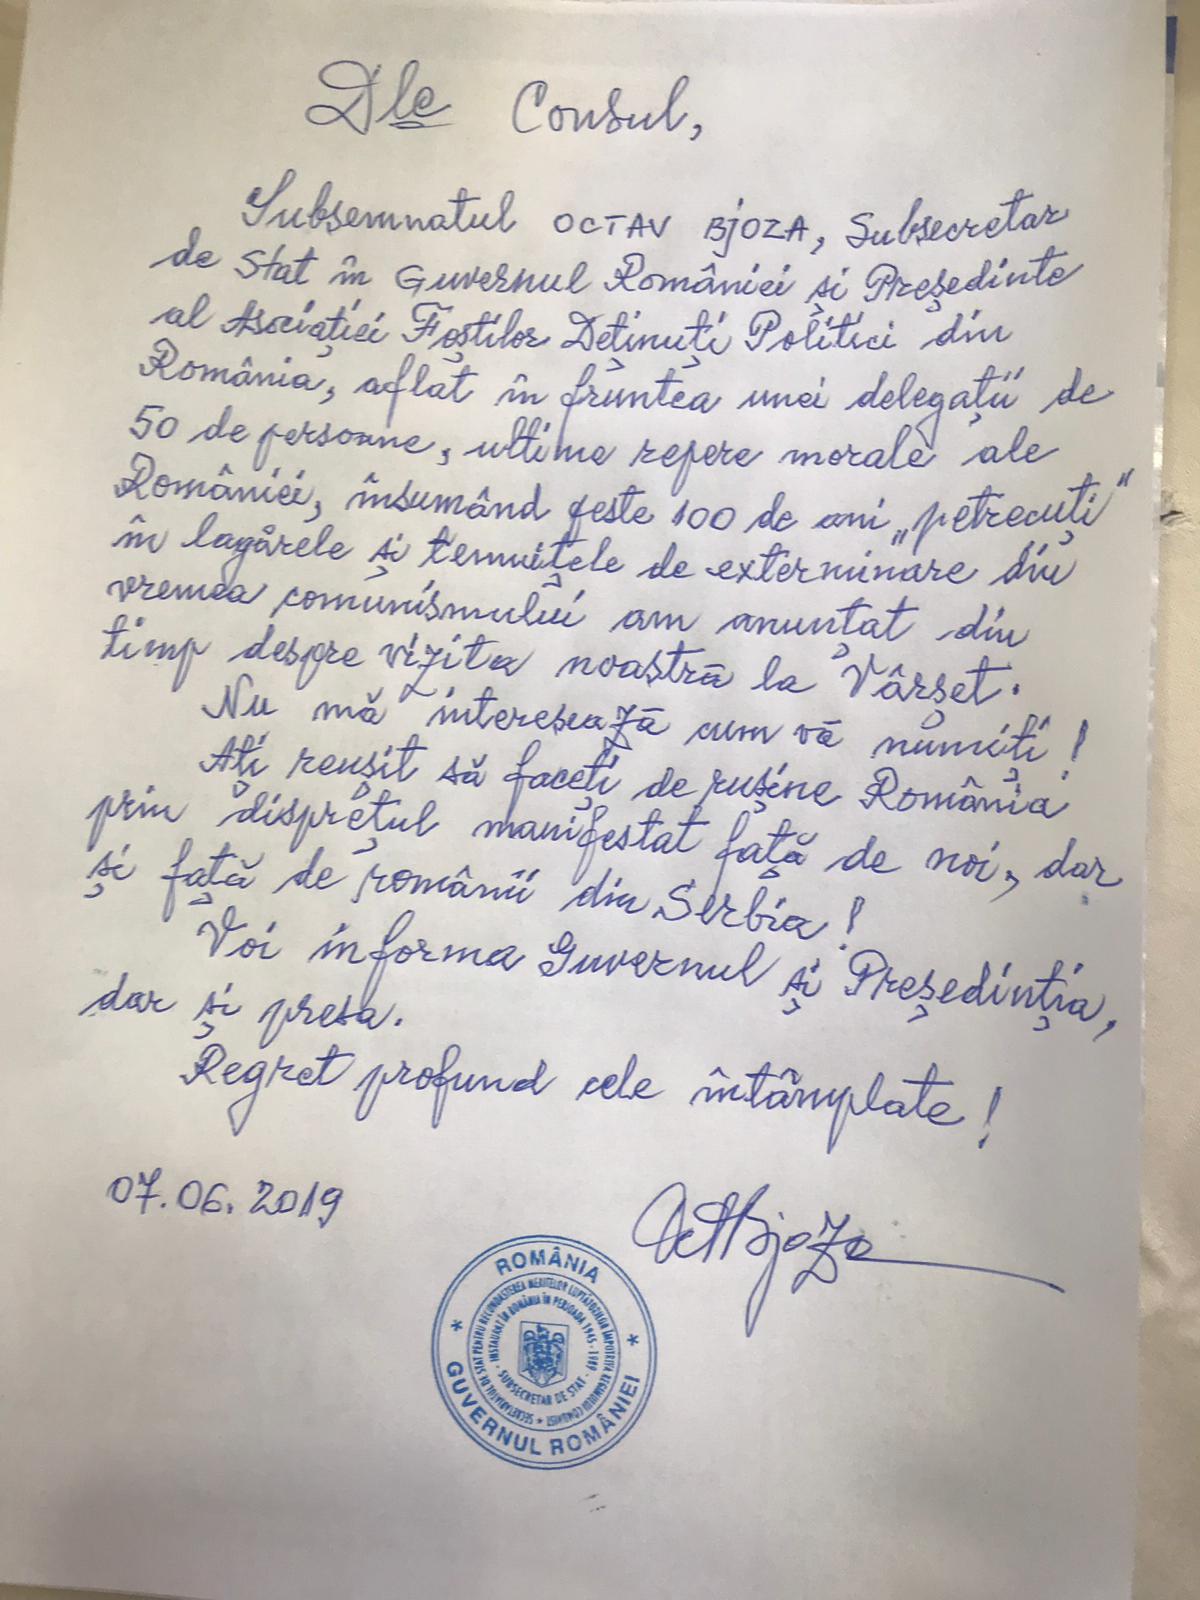 Dle Consul,
Subsemnatul OCTAV BJOZA, Subsecretar
de Stat în Guvernul României și Președinte
al Asociației Foștilor Deținuți Politici din
România, aflat în fruntea unei delegații de
50 de persoane, ultime repere morale ale
României, însumând peste 100 de ani „petrecuți”
în lagărele și temnițele de exterminare din
vremea comunismului am anunțat din
timp despre vizita noastră la Vârșeț.
Nu mă interesează cum vă numiți!
Ați reușit să faceți de rușine România
prin disprețul manifestat față de noi, dar
și față de românii din Serbia!
Voi informa Guvernul și Președinția,
dar și presa.
Regret profund cele întâmplate!
07.06.2019
OctBjoza
ROMÂNIA
GUVERNUL ROMÂNIEI
SECRETARIATUL DE STAT PENTRU RECUNOAȘTEREA MERITELOR LUPTĂTORILOR ÎMPOTRIVA REGIMULUI COMUNIST
INSTAURAT ÎN ROMÂNIA ÎN PERIOADA 1945-1989
SUBSECRETAR DE STAT